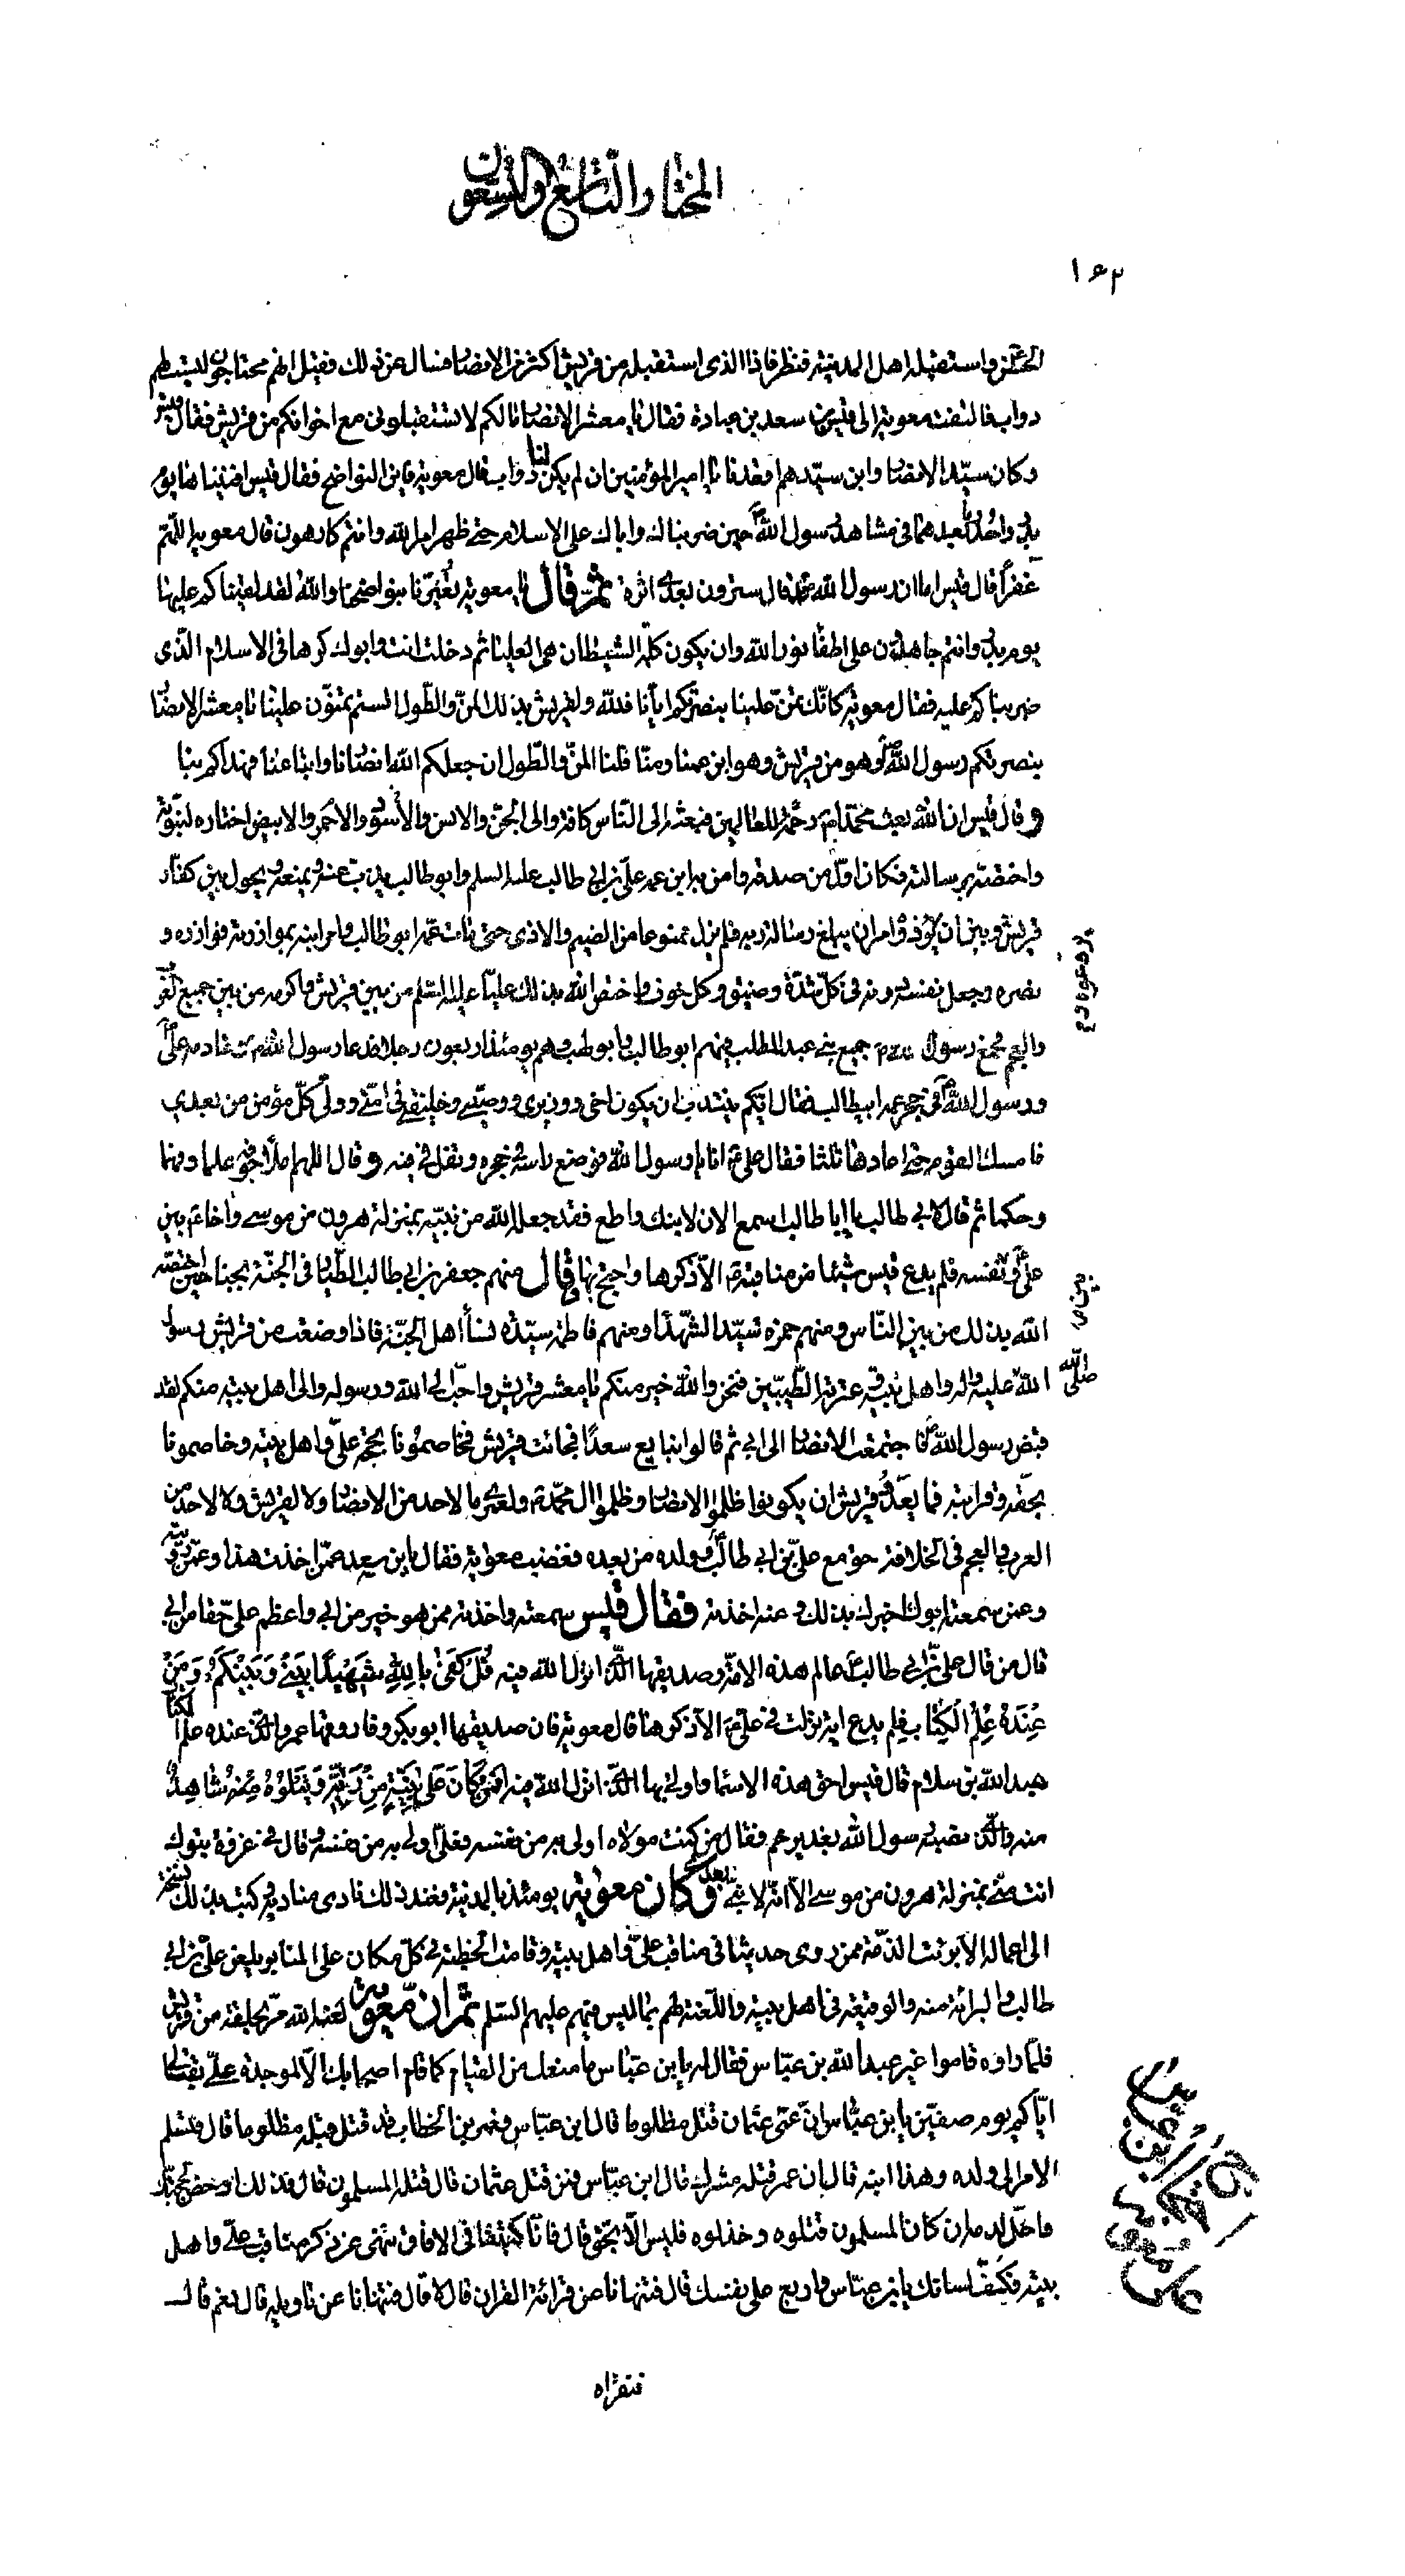 المختار التاسع والتسعون
١٦٢
الحسن واستقبله اهل المدينة فنظر فاذا الذى استقبله من قريش اكثر من الانصار فسال عن ذلك فقيل انهم محتاجون ليست لهم
دواب فالتفت معوية الى قيس بن سعد بن عبادة فقال يا معشر الانصار مالكم لا تستقبلونى مع اخوانكم من قريش فقال قيس
وكان سيد الانصار وابن سيدهم اقعدنا يا امير المؤمنين ان لم يكن لنا دواب قال معوية فاين النواضح فقال قيس افنيناها يوم
بدر واحد وما بعدهما فى مشاهد رسول الله ص حين ضربناك واباك على الاسلام حتى ظهر امر الله وانتم كارهون قال معوية اللهم
غفراً قال قيس اما ان رسول الله ص قال سترون بعدى اثرة ثم قال يا معوية تعيّرنا بنواضحنا والله لقد لقيناكم عليها
يوم بدر وانتم جاهدون على اطفاء نور الله وان يكون كلمة الشيطان هى العليا ثم دخلت انت وابوك كرها فى الاسلام الذى
ضربناكم عليه فقال معوية كانك تمنّ علينا بنصرتكم ايانا فلله ولقريش بذلك المنّ والطّول الستم تمنّون علينا يا معشر الانصار
بنصرتكم رسول الله ص وهو من قريش وهو ابن عمنا ومنّا فلنا المنّ والطّول ان جعلكم الله انصارنا واتباعنا فهداكم بنا
وقال قيس ان الله بعث محمدا ص رحمة للعالمين فبعثه الى الناس كافة والى الجن والانس والاسود والاحمر والابيض اختاره لنبوته
واختصه برسالته فكان اول من صدقه وامن به ابن عمه علىّ بن ابى طالب عليه السلم وابو طالب يذب عنه ويمنعه ويحول بين كفار
قريش وبين ان يؤذوه وامره ان يبلغ رسالة ربه فلم يزل ممنوعا من الضيم والاذى حتى مات عمه ابو طالب وامر ابنه بموازرته فوازره و
نصره وجعل نفسه دونه فى كل شدة وضيق وكل خوف واختص الله بذلك عليا عليه السلم من بين قريش واكرمه من بين جميع العرب
والعجم فجمع رسول الله ص جميع بنى عبد المطلب فيهم ابو طالب وابو لهب وهم يومئذ اربعون رجلا فدعا رسول الله ص خادمه علىّ
ورسول الله ص فى حجر عمه ابيطالب فقال ايكم ينتدب ان يكون اخى ووزيرى ووصيى وخليفتى فى امتى وولى كل مؤمن من بعدى
فامسك القوم حتى اعادها ثلثا فقال على ع انا يا رسول الله فوضع راسه فى حجره وتفل فى فيه وقال اللهم املأ جوفه علما وفهما
وحكما ثم قال لابى طالب يا ابا طالب اسمع الان لابنك واطع فقد جعله الله من نبيه بمنزلة هرون من موسى واخا ص بين
على ع وبين نفسه فلم يدع قيس شيئا من مناقبه الا ذكرها واحتج بها وقال منهم جعفر بن ابى طالب الطيار فى الجنة بجناحين اختصه
الله بذلك من بين الناس ومنهم حمزه سيد الشهدا ومنهم فاطمة سيدة نساء اهل الجنة فاذا وضعت من قريش رسول
الله صلى الله عليه واله واهل بيته وعترته الطيبين فنحن والله خير منكم يا معشر قريش واحب الى الله ورسوله والى اهل بيته منكم لقد
قبض رسول الله ص فاجتمعت الانصار الى ابى ثم قالوا نبايع سعدا فجائت قريش فخاصمونا بحجة على واهل بيته وخاصمونا
بحقه وقرابته فما يعدو قريش ان يكونوا ظلموا الانصار وظلموا ال محمد ع ولعمرى ما لاحد من الانصار ولا لقريش ولا لاحد من
العرب والعجم فى الخلافة حق مع على بن ابى طالب ع وولده من بعده فغضب معوية فقال يابن سعد عمن اخذت هذا وعمن رويته
وعمن سمعته ابوك اخبرك بذلك وعنه اخذته فقال قيس سمعته واخذته ممن هو خير من ابى واعظم على حقا من ابى
قال من قال على بن ابى طالب ع عالم هذه الامة وصديقها الذى انزل الله فيه قُلْ كَفَىٰ بِاللهِ شَهِيداً بَيْنِي وَبَيْنَكُمْ وَمَنْ
عِنْدَهُ عِلْمُ الْكِتابِ فلم يدع اية نزلت فى على ع الا ذكرها قال معوية فان صديقها ابو بكر وفاروقها عمر والذى عنده علم الكتاب
عبد الله بن سلام قال قيس احق هذه الاسماء واولى بها الذى انزل الله فيه افَمَنْ كَانَ عَلىٰ بَيِّنَةٍ مِنْ رَبِّهِ وَيَتْلُوهُ شاهِدٌ
منه والذى نصبه رسول الله بغدير خم فقال من كنت مولاه اولى به من نفسه فعلى اولى به من نفسه وقال فى غزوة تبوك
انت منى بمنزلة هرون من موسى الا انه لا نبى بعدى وكان معوية يومئذ بالمدينة فعند ذلك نادى مناديه وكتب بذلك نسخة
الى عماله الا برئت الذمة ممن روى حديثا فى مناقب على واهل بيته وقامت الخطبة فى كل مكان على المنابر بلعن على بن ابى
طالب والبرائة منه والوقيعة فى اهل بيته واللعنة لهم بما ليس فيهم عليهم السلم ثم ان معوية لعنه الله مر بحلقة من قريش
فلما راوه قاموا غير عبد الله بن عباس فقال له يابن عباس ما منعك من القيام كما قام اصحابك الا لموجدة علىّ بقتالى
اياكم يوم صفين يابن عباس ان عمى عثمان قتل مظلوما قال ابن عباس فعمر بن الخطاب قد قتل قبله مظلوما قال فتسلم
الامر الى ولده وهذا ابنه قال ان عمر قتله مشرك قال ابن عباس فمن قتل عثمان قال قتله المسلمون قال فذلك ادحض لحجتك
واحل لدمه ان كان المسلمون قتلوه وخذلوه فليس الا بحق قال فانّا كتبنا فى الافاق ننهى عن ذكر مناقب على واهل
بيته فكف لسانك يابن عباس واربع على نفسك قال فتنهانا عن قرائة القران قال لا قال فتنهانا عن تاويله قال نعم قال
احتجاج ابن عباس على معوية
فنقراه